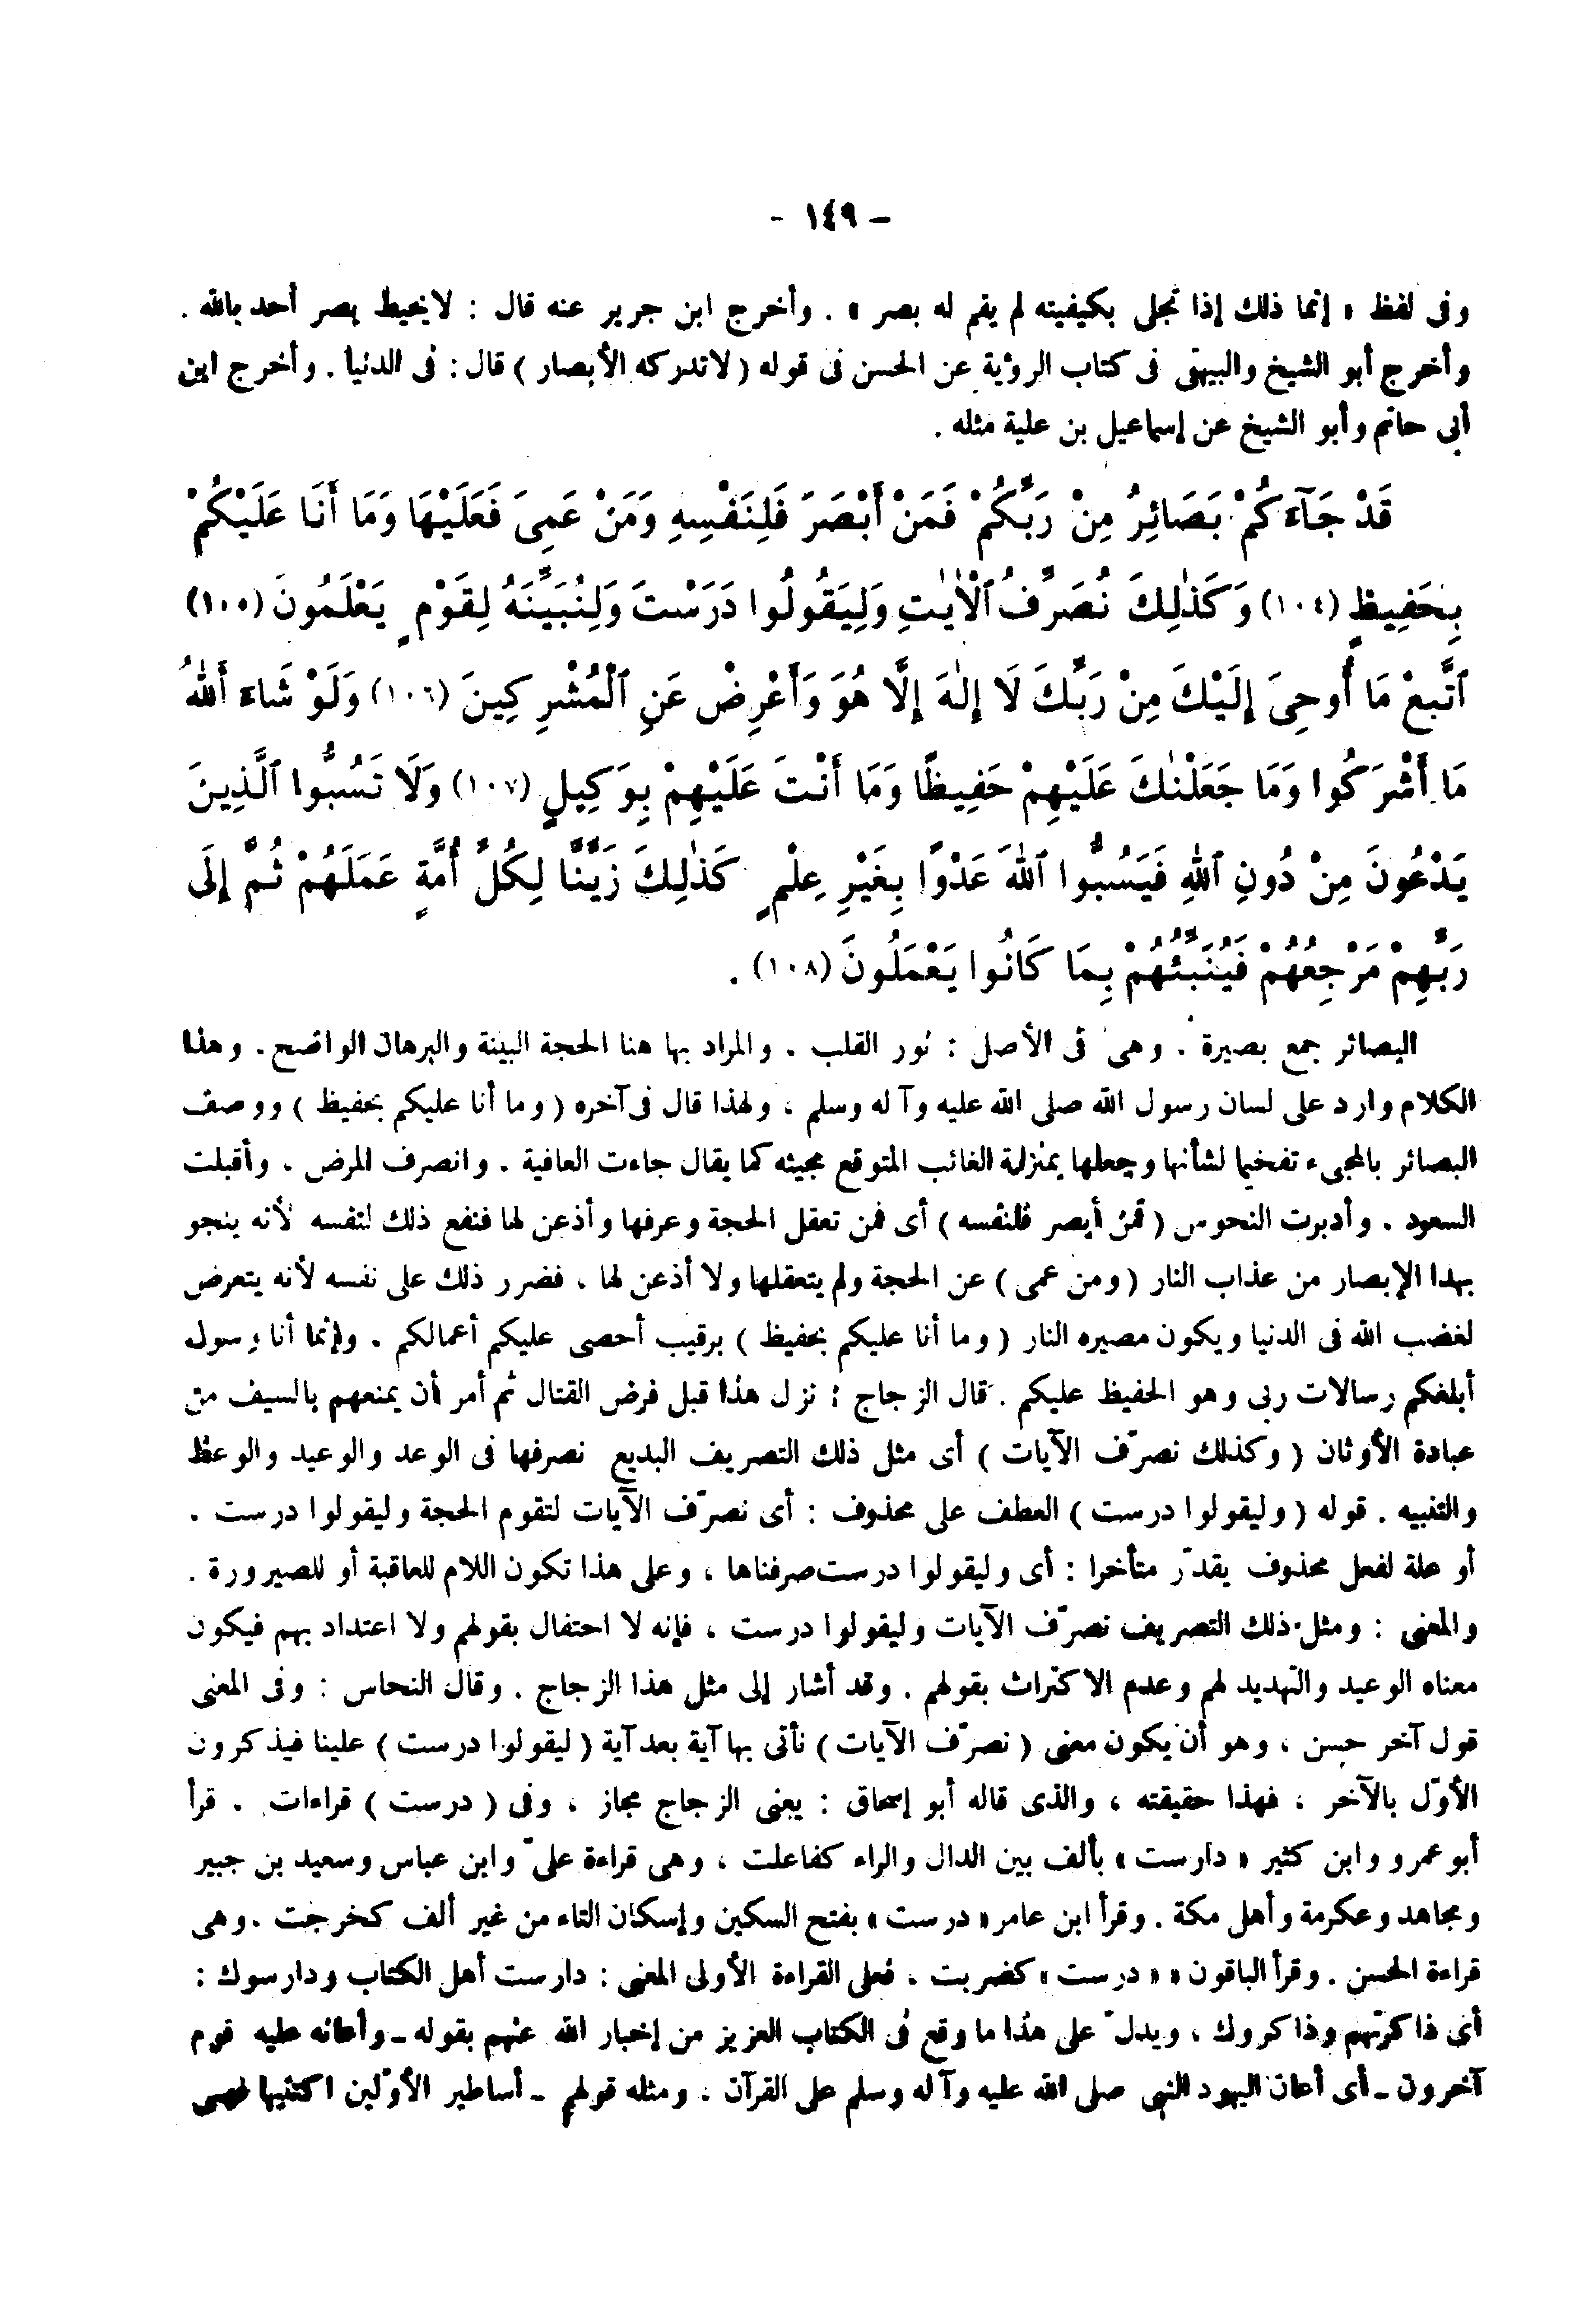 - ١٤٩ -
وفى لفظ « إنما ذلك إذا تجلى بكيفيته لم يقم له بصر » . وأخرج ابن جرير عنه قال : لايحيط بصر أحد بالله .
وأخرج أبو الشيخ والبيهقى فى كتاب الرؤية عن الحسن فى قوله ( لاتدركه الأبصار ) قال : فى الدنيا . وأخرج ابن
أبى حاتم وأبو الشيخ عن إسماعيل بن علية مثله .
قَدْ جَآءَكُمْ بَصَائِرُ مِنْ رَبِّكُمْ فَمَنْ أَبْصَرَ فَلِنَفْسِهِ وَمَنْ عَمِىَ فَعَلَيْهَا وَمَا أَنَا عَلَيْكُمْ
بِحَفِيظٍ (١٠٤) وَكَذٰلِكَ نُصَرِّفُ ٱلْاٰيٰتِ وَلِيَقُولُوا دَرَسْتَ وَلِنُبَيِّنَهُ لِقَوْمٍ يَعْلَمُونَ (١٠٥)
ٱتَّبِعْ مَا أُوحِىَ إِلَيْكَ مِنْ رَبِّكَ لَا إِلٰهَ إِلَّا هُوَ وَأَعْرِضْ عَنِ ٱلْمُشْرِكِينَ (١٠٦) وَلَوْ شَاءَ ٱللهُ
مَا أَشْرَكُوا وَمَا جَعَلْنٰكَ عَلَيْهِمْ حَفِيظًا وَمَا أَنْتَ عَلَيْهِمْ بِوَكِيلٍ (١٠٧) وَلَا تَسُبُّوا ٱلَّذِينَ
يَدْعُونَ مِنْ دُونِ ٱللهِ فَيَسُبُّوا ٱللهَ عَدْوًا بِغَيْرِ عِلْمٍ كَذٰلِكَ زَيَّنَّا لِكُلِّ أُمَّةٍ عَمَلَهُمْ ثُمَّ إِلَى
رَبِّهِمْ مَرْجِعُهُمْ فَيُنَبِّئُهُمْ بِمَا كَانُوا يَعْمَلُونَ (١٠٨) .
البصائر جمع بصيرة . وهى فى الأصل : نور القلب . والمراد بها هنا الحجة البينة والبرهان الواضح . وهذا
الكلام وارد على لسان رسول الله صلى الله عليه وآله وسلم ، ولهذا قال فى آخره ( وما أنا عليكم بحفيظ ) ووصف
البصائر بالمجىء تفخيما لشأنها وجعلها بمنزلة الغائب المتوقع مجيئه كما يقال جاءت العافية . وانصرف المرض . وأقبلت
السعود . وأدبرت النحوس ( فمن أبصر فلنفسه ) أى فمن تعقل الحجة وعرفها وأذعن لها فنفع ذلك لنفسه لأنه ينجو
بهذا الإبصار من عذاب النار ( ومن عمى ) عن الحجة ولم يتعقلها ولا أذعن لها ، فضرر ذلك على نفسه لأنه يتعرض
لغضب الله فى الدنيا ويكون مصيره النار ( وما أنا عليكم بحفيظ ) برقيب أحصى عليكم أعمالكم . وإنما أنا رسول
أبلغكم رسالات ربى وهو الحفيظ عليكم . قال الزجاج : نزل هذا قبل فرض القتال ثم أمر أن يمنعهم بالسيف من
عبادة الأوثان ( وكذلك نصرّف الآيات ) أى مثل ذلك التصريف البديع نصرفها فى الوعد والوعيد والوعظ
والتنبيه . قوله ( وليقولوا درست ) العطف على محذوف : أى نصرّف الآيات لتقوم الحجة وليقولوا درست .
أو علة لفعل محذوف يقدّر متأخرا : أى وليقولوا درست صرفناها ، وعلى هذا تكون اللام للعاقبة أو للصيرورة .
والمعنى : ومثل ذلك التصريف نصرّف الآيات وليقولوا درست ، فإنه لا احتفال بقولهم ولا اعتداد بهم فيكون
معناه الوعيد والتهديد لهم وعدم الاكتراث بقولهم . وقد أشار إلى مثل هذا الزجاج . وقال النحاس : وفى المعنى
قول آخر حسن ، وهو أن يكون معنى ( نصرّف الآيات ) نأتى بها آية بعد آية ( ليقولوا درست ) علينا فيذكرون
الأوّل بالآخر ، فهذا حقيقته ، والذى قاله أبو إسحاق : يعنى الزجاج مجاز ، وفى ( درست ) قراءات . قرأ
أبو عمرو وابن كثير « دارست » بألف بين الدال والراء كفاعلت ، وهى قراءة علىّ وابن عباس وسعيد بن جبير
ومجاهد وعكرمة وأهل مكة . وقرأ ابن عامر « درست » بفتح السكين وإسكان التاء من غير ألف كخرجت . وهى
قراءة الحسن . وقرأ الباقون « « درست » كضربت ، فعلى القراءة الأولى المعنى : دارست أهل الكتاب ودارسوك :
أى ذاكرتهم وذاكروك ، ويدلّ على هذا ما وقع فى الكتاب العزيز من إخبار الله عنهم بقوله ـ وأعانه عليه قوم
آخرون ـ أى أعان اليهود النبى صلى الله عليه وآله وسلم على القرآن ، ومثله قولهم ـ أساطير الأوّلين اكتتبها فهى